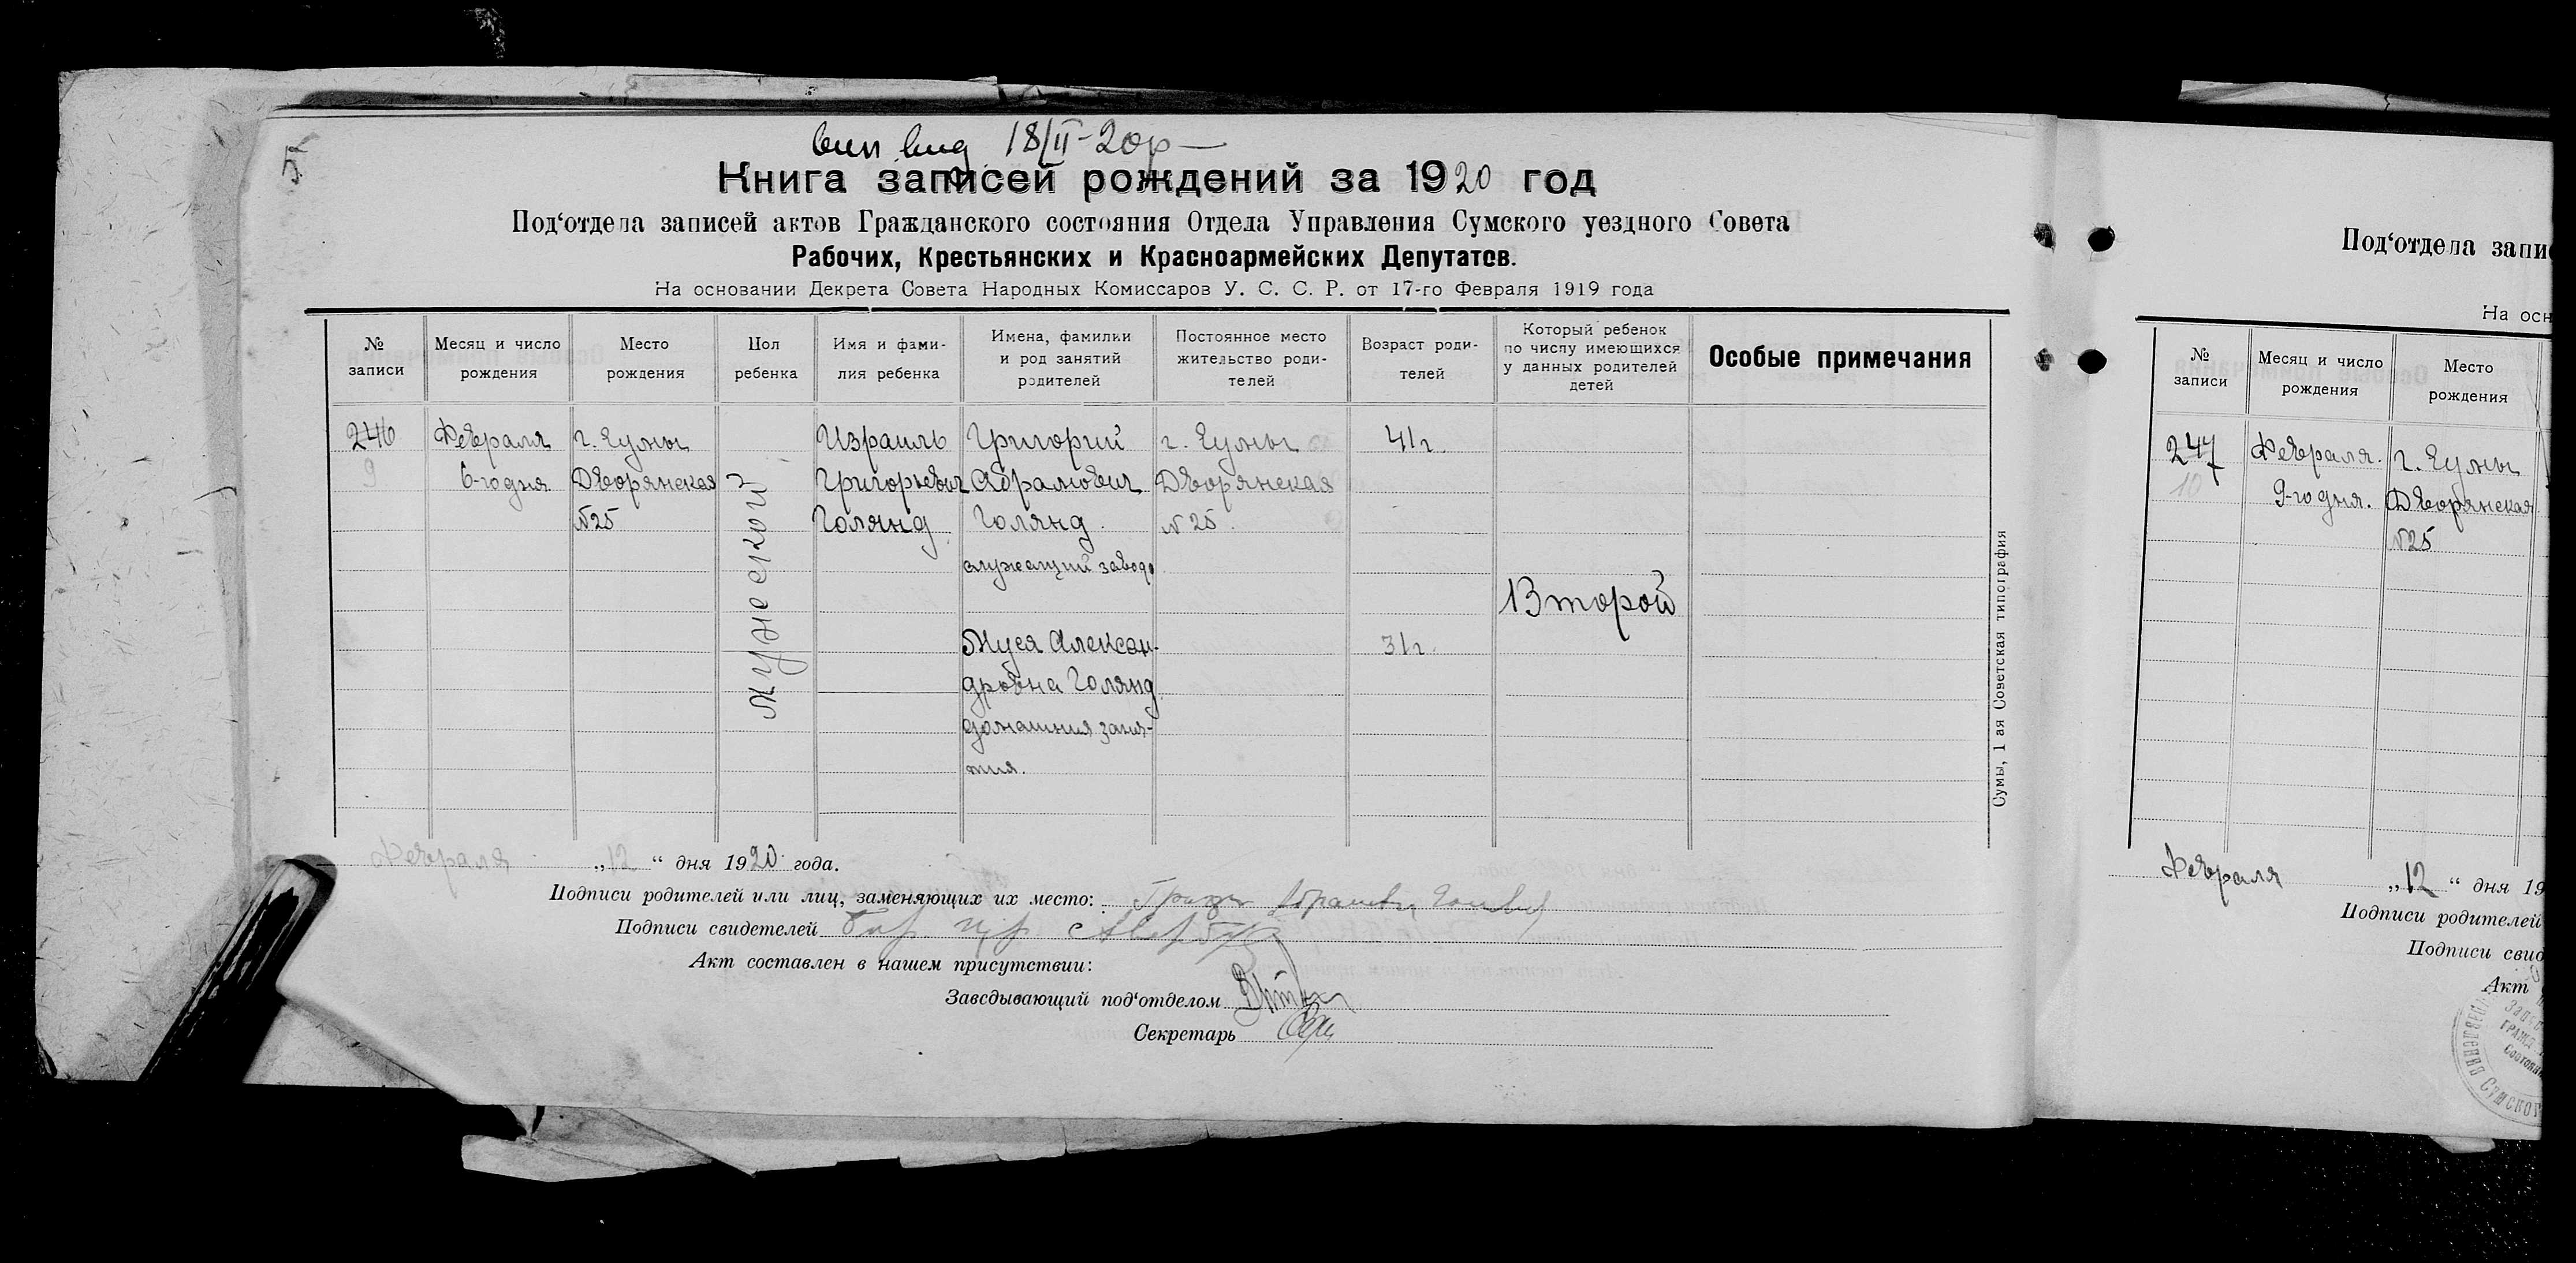 5
18/II-20р
Книга записей рождений за 1920 год
Под‘отдела записей актов Гражданского состояния Отдела Управления Сумского уездного Совета
Рабочих, Крестьянских и Красноармейских Депутатов.
На основании Декрета Совета Народных Комиссаров У. С. С. Р. от 17-го Февраля 1919 года
№ записи
Месяц и число рождения
Место рождения
Пол ребенка
Имя и фами-
лия ребенка
Имена, фамилии
и род занятий
родителей
Постоянное место
жительство роди-
телей
Возраст роди-
телей
Который ребенок
по числу имеющихся
у данных родителей
детей
Особые примечания
246
9
Февраля
6-го дня
г. Сумы
Дворянская
№25
мужской
Израиль
Григорьевич
Голянд
Григорий
Абрамович
Голянд
служащий завода
Муся Алексан-
дровна Голянд
домашния заня-
тия.
г. Сумы
Дворянская
№25.
41г.
31г.
Второй
Сумы, 1 ая Советская типография
Февраля „12“ дня 1920 года.
Подписи родителей или лиц, заменяющих их место:
Подписи свидетелей
Акт составлен в нашем присутствии:
Заведывающий под‘отделом
Секретарь
Под‘отдела запи
На осн
№ записи
Месяц и число рождения
Место рождения
247
10
Февраля.
9-го дня.
г. Сумы
Дворянская
№25
Февраля „12“ дня 19
Подписи родителей
Подписи свид
Акт